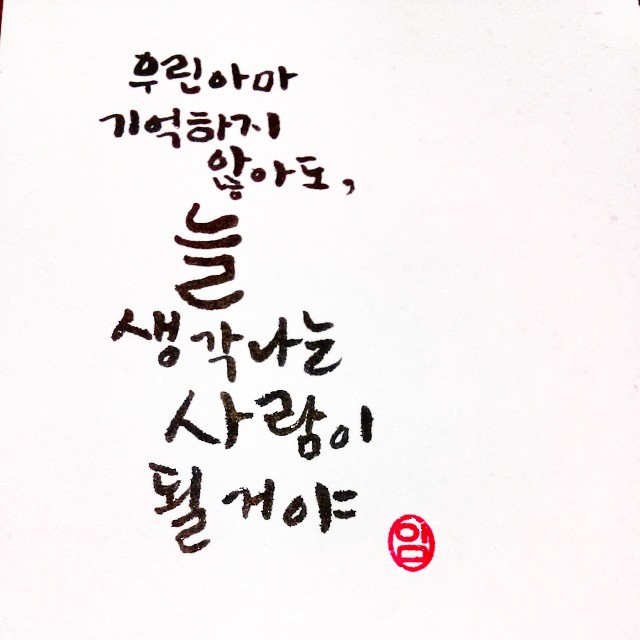 우린아마
기억하지
않아도,
늘
생각나는
사람이
될거야
임